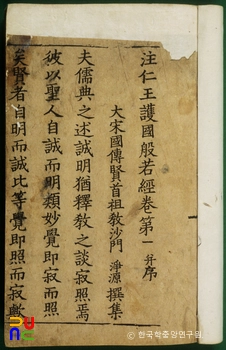 注仁王護國般若經卷第一 并序
大宋國傳賢首祖教沙門 淨源 撰集
夫儒典之述誠明猶釋教之談寂照焉
彼以聖人自誠而明類妙覺即寂而照
矣賢者自明而誠比等覺即照而寂歟
한국학중앙연구원